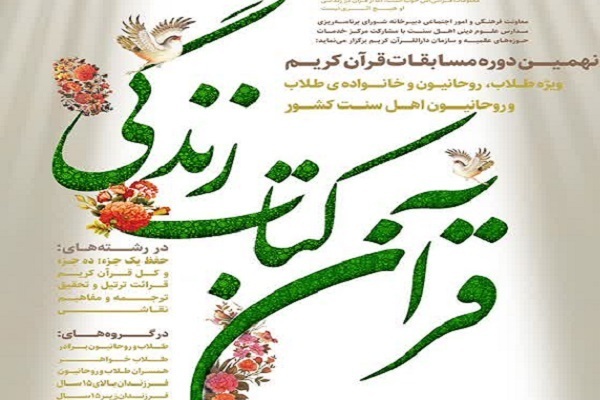 او هیچ اثری نیست
معاونت فرهنگی و امور اجتماعی دبیرخانه شورای برنامه‌ریزی
مدارس علوم دینی اهل سنت با مشارکت مرکز خدمات
حوزه‌های علمیه و سازمان دارالقرآن کریم برگزار می‌نماید:
نهمین دوره مسابقات قرآن کریم
ویژه طلاب، روحانیون و خانواده‌ی طلاب
و روحانیون اهل سنت کشور
قرآن کتاب زندگی
در رشته‌های:
حفظ یک جزء؛ ده جزء
و کل قرآن کریم
قرائت ترتیل و تحقیق
ترجمه و مفاهیم
نقاشی
در گروه‌های:
طلاب و روحانیون برادر
طلاب خواهر
همسران طلاب و روحانیون
فرزندان بالای ۱۵ سال
فرزندان زیر ۱۵ سال